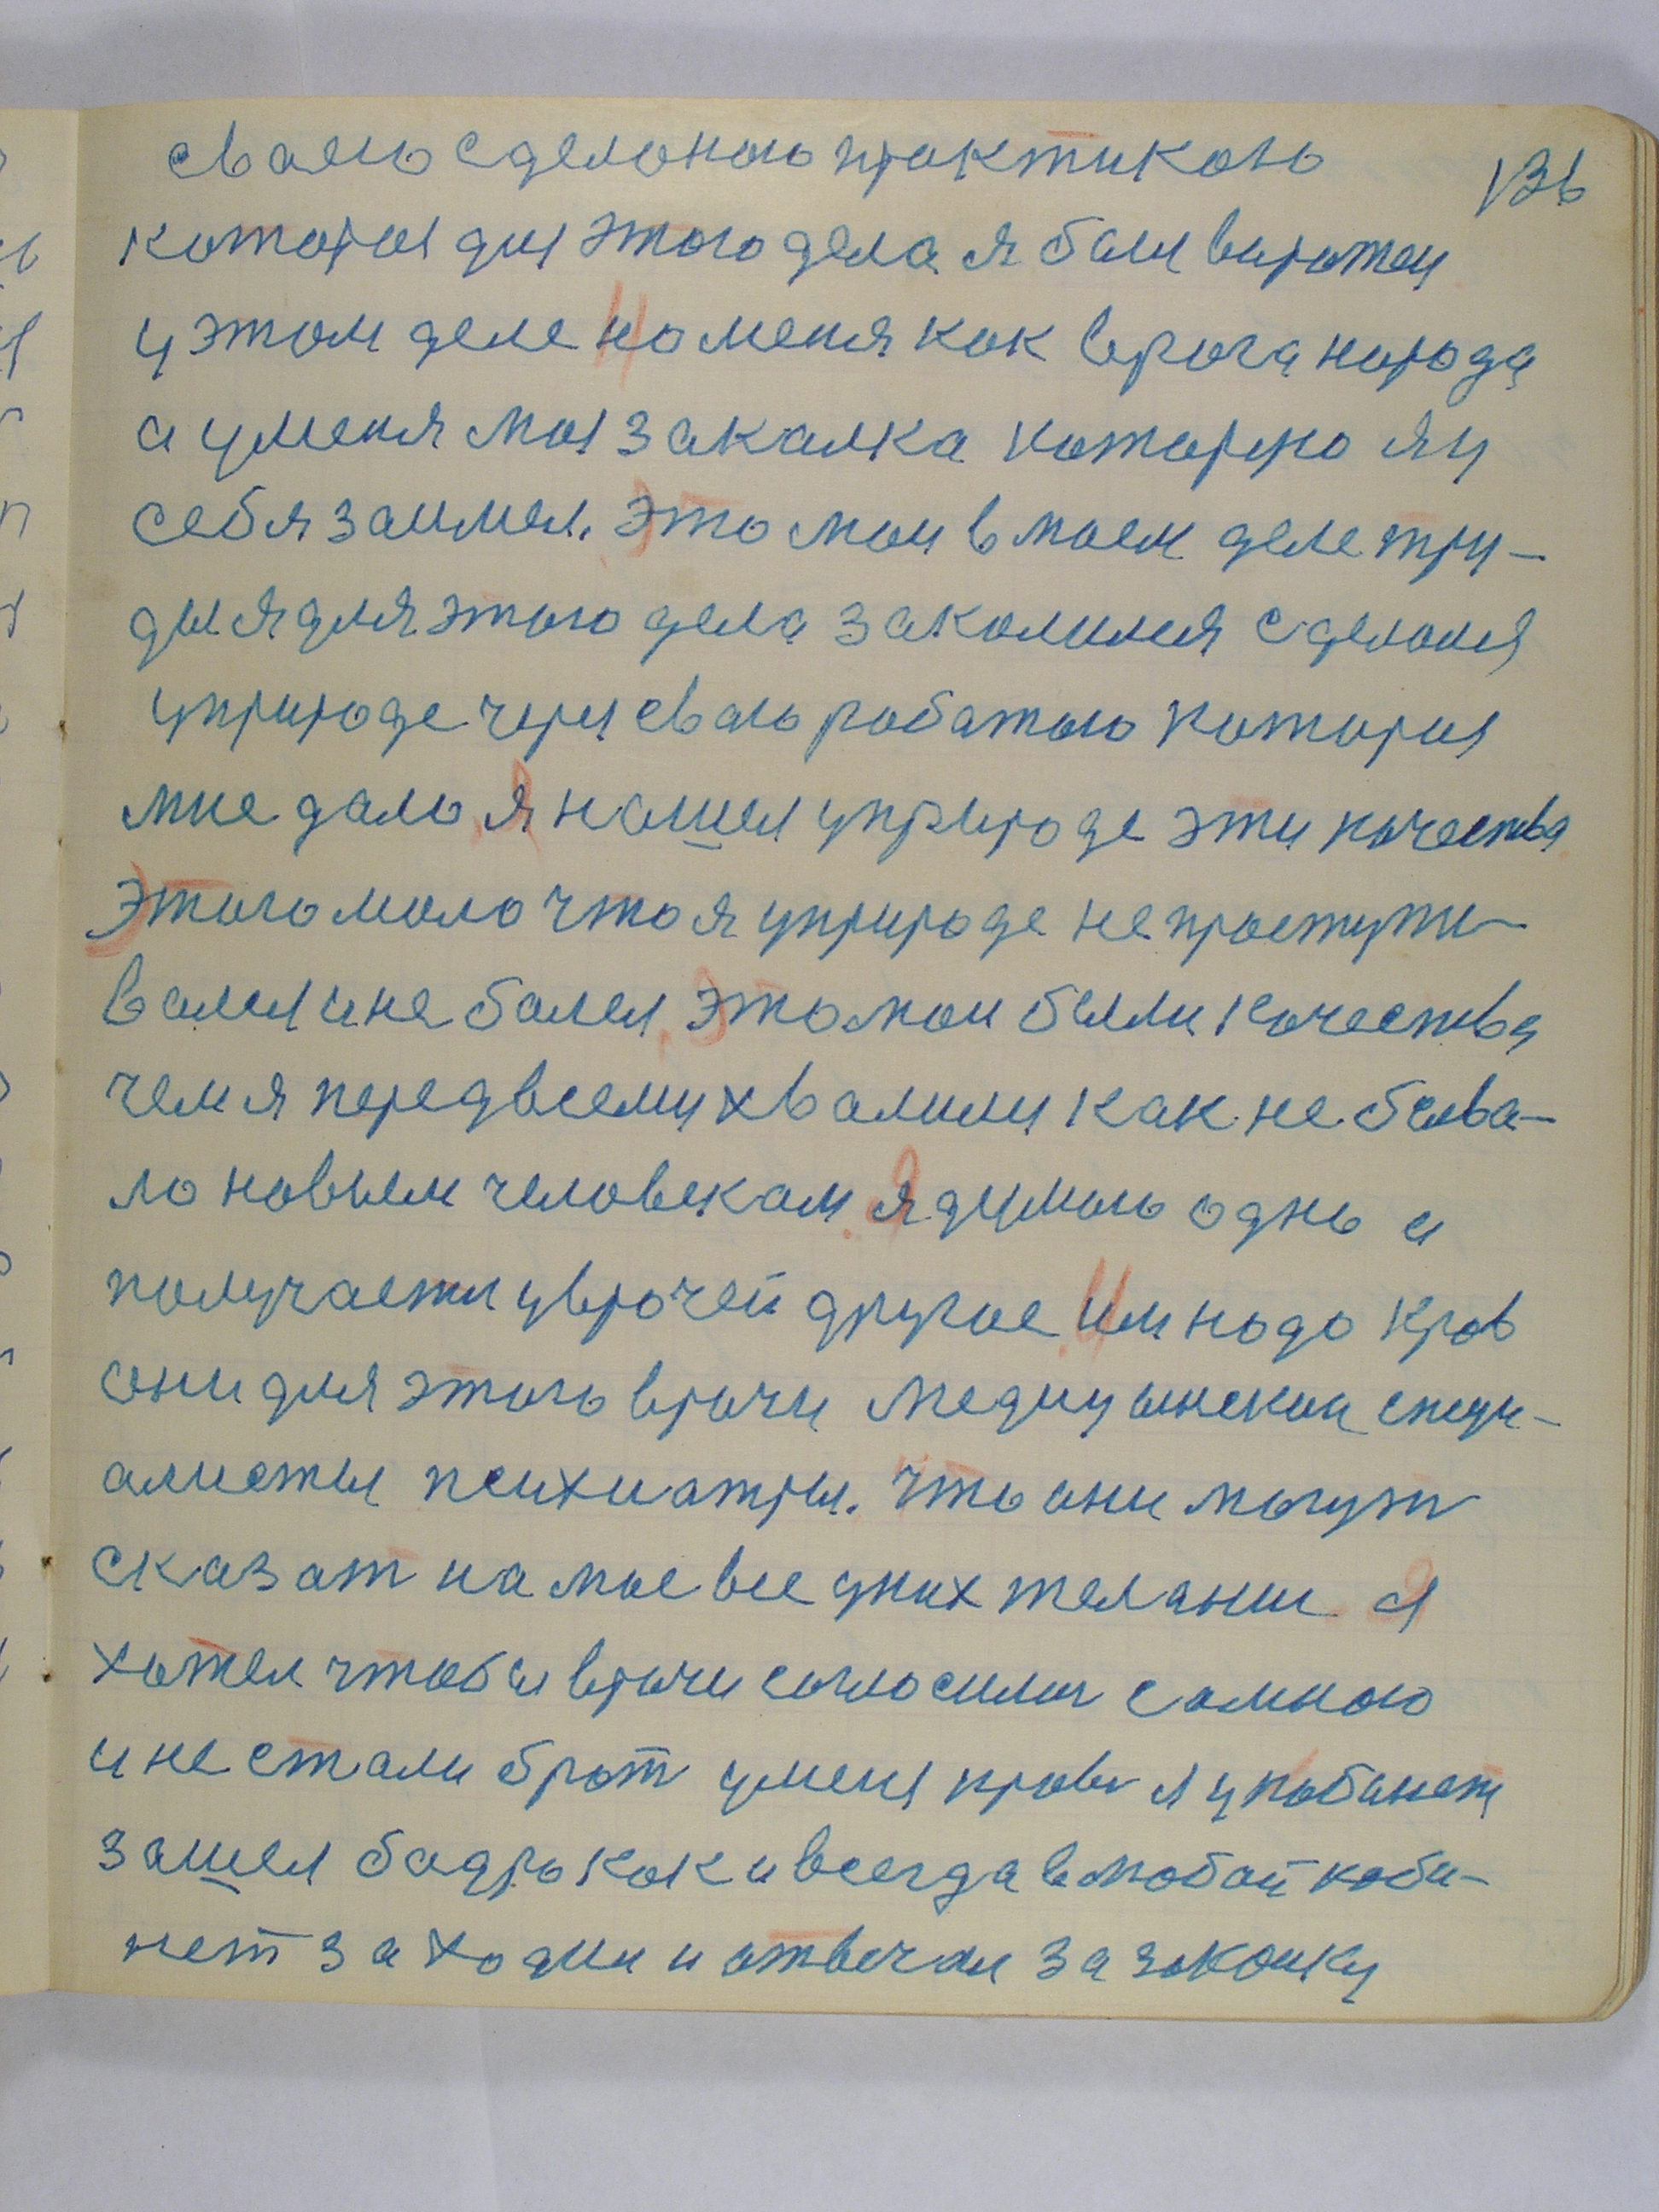 сваею сделаною практикаю
136
которыя для этого дела я был виражен
у этом деле на меня как врага народа
а у меня моя закалка которую я у
себя заимел. Это мои в моем деле тру-
ды я для этого дела закалился сделался
у природе через сваю работаю которыя
мне дало я нашел у природе эти качества
Этого мало что я у природе не простужи-
вался и не балел, это мои были качества
чем я перед всеми хвалили как не быва-
ло новым человекам я думаю однь и
получаетя у врачей другое им надо кров
они для этого врачи медицынскии специ-
алисты психиатры. Что они могут
сказат на мое все у них желании я
хотел чтобы врачи согласилис самною
и не стали брат у меня крови я у кабинет
зашел бадрь как и всегда в любай каби-
нет заходил и отвечал за закалку